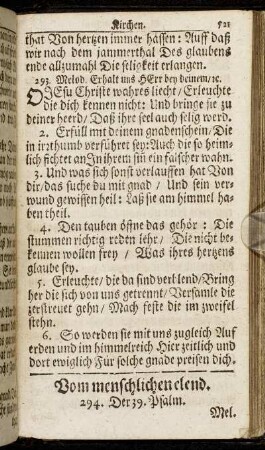 Kirchen. 521
that Von hertzen immer hassen: Auff daß
wir nach dem jammerthal Des glaubens
ende allzumahl Die seligkeit erlangen.
293. Melod. Erhalt uns HErr bey deinem/ıc.
OJEsu Christe wahres liecht/ Erleuchte
die dich kennen nicht: Und bringe sie zu
deiner heerd/ Daß ihre seel auch selig werd.
2. Erfüll mit deinem gnadenschein/ Die
in irzthumb verführet sey: Auch die so heim-
lich sichtet an In ihrem sin ein falscher wahn.
3. Und was sich sonst verlauffen hat Von
dir/ das suche du mit gnad / Und sein ver-
wund gewissen heil: Laß sie am himmel ha-
ben theil.
4. Den tauben öffne das gehör : Die
stummen richtig reden lehr / Die nicht be-
kennen wollen frey / Was ihres hertzens
glaube sey.
5. Erleuchte/ die da sind verblend/ Bring
her die sich von uns getrennt/ Versamle die
zerstreuet gehn/ Mach feste die im zweifel
stehn.
6. So werden sie mit uns zugleich Auf
erden und im himmelreich Hier zeitlich und
dort ewiglich Für solche gnade preisen dich.
Vom menschlichen elend.
294. Der 39. Psalm.
Mel.